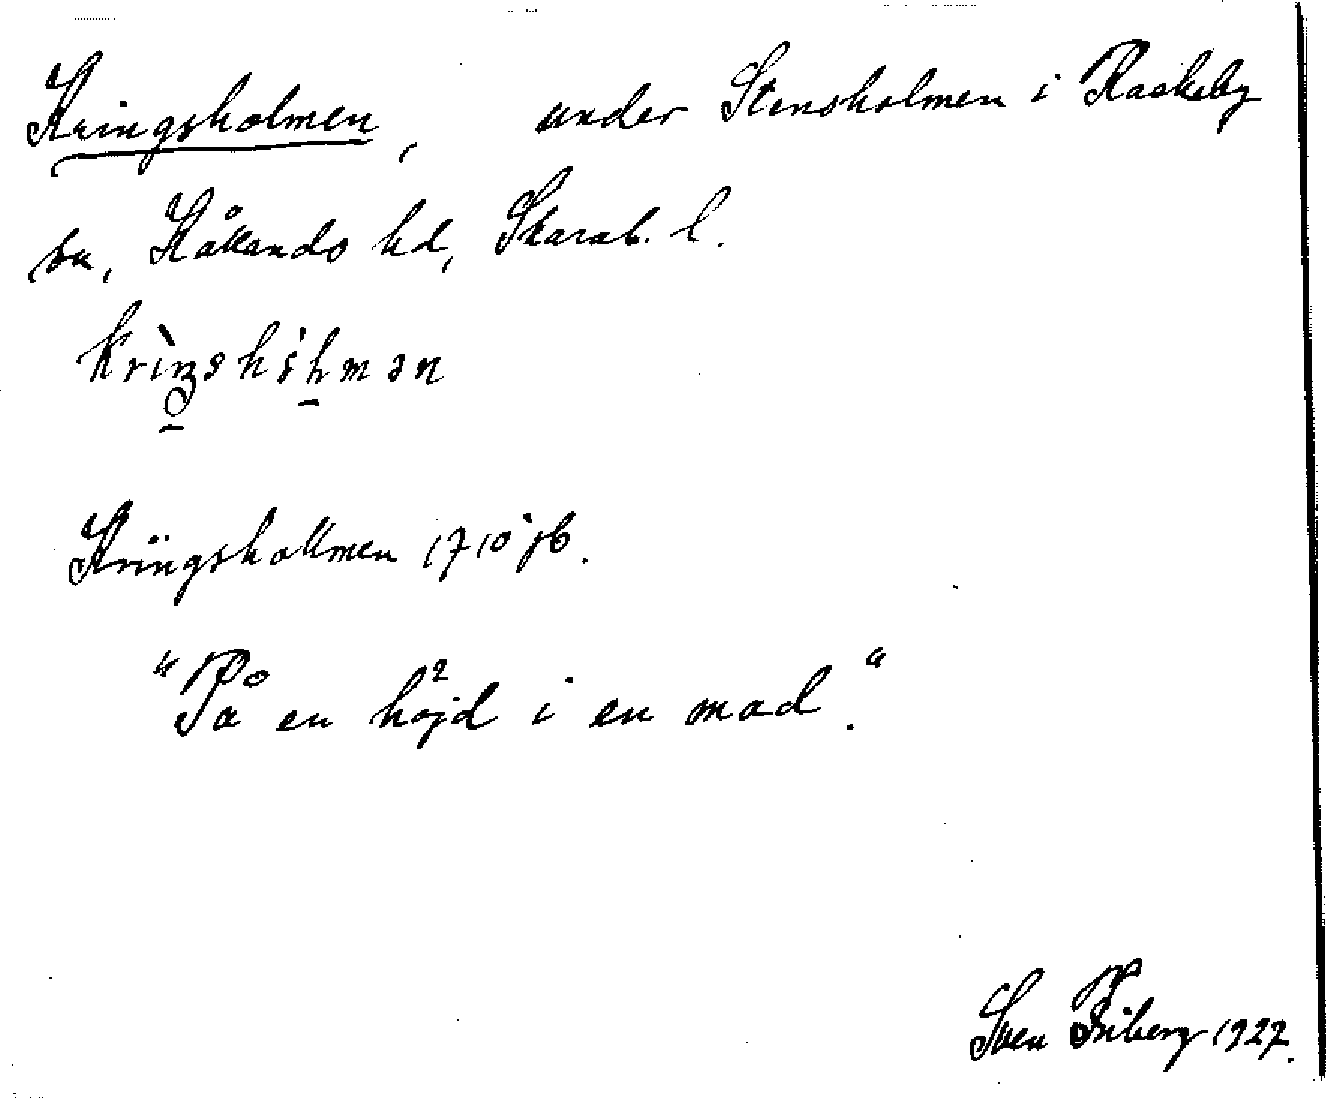 Kringsholmen, under Stensholmen i Rackeby
sn, Kållands hd, Skarab. l.
Kringshollmen 1710 jb.
"På en höjd i en mad."
Sven Friberg 1927.